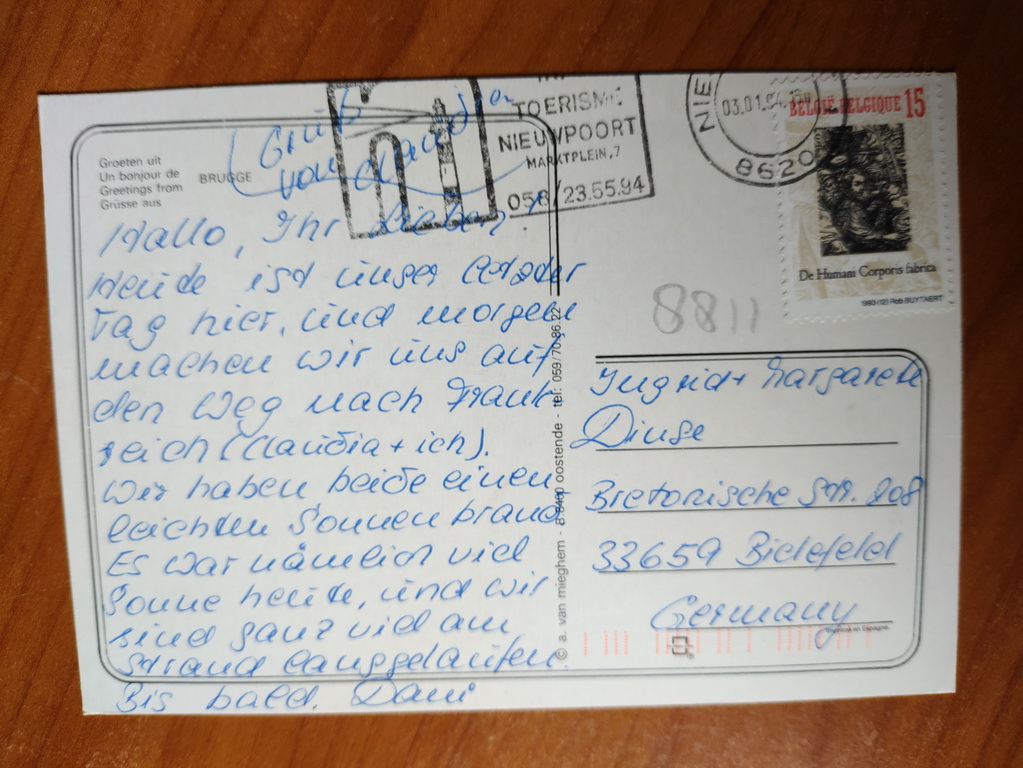 Groeten uit
Un bonjour de
Greetings from
Grüsse aus
BRUGGE
Gruß
von Claudia
TOERISME
NIEUWPOORT
MARKTPLEIN, 7
058/23.55.94
NIE
03.01.94
8620
BELGIË-BELGIQUE 15
De Humani Corporis fabrica
1993 (12) Rob BUYTAERT
8811
Hallo, Ihr Lieben!
Heute ist unser letzter
Tag hier, und morgen
machen wir uns auf
den Weg nach Frank
reich (Claudia + ich).
Wir haben beide einen
leichten Sonnenbrand
Es war nämlich viel
Sonne heute, und wir
sind ganz viel am
Strand langgelaufen
Bis bald, Dani
© a. van mieghem - 8.400 oostende - tel: 059/70.86.22
Ingrid + Margarete
Dinse
Bretonische Str. 208
33659 Bielefeld
Germany